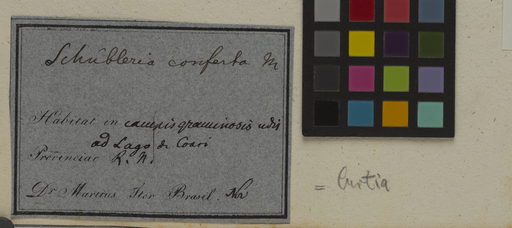 Schübleria conferta M
Habitat in campis graminosis udis
ad Lago de Coari
Provinciae R. N.
Dr Martius Iter Brasil. Mbr
= Curtia